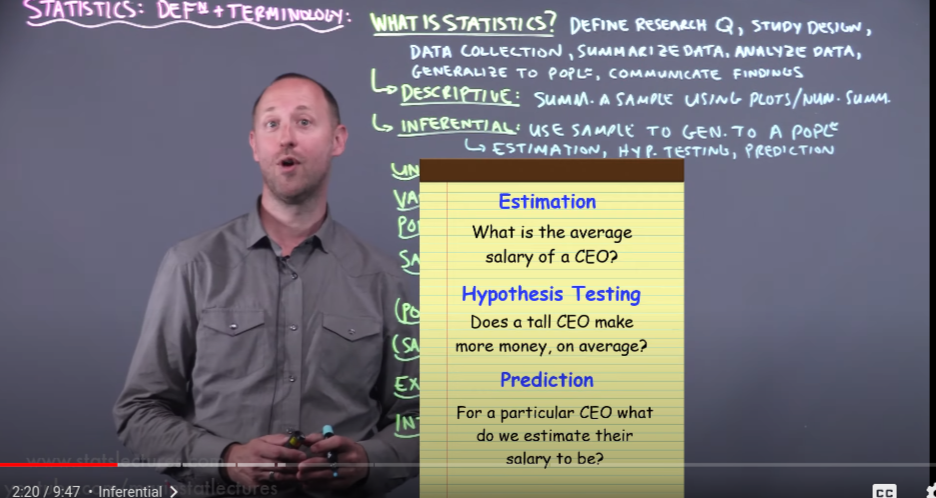 STATISTICS: DEFᴺ + TERMINOLOGY:
WHAT IS STATISTICS? DEFINE RESEARCH Q, STUDY DESIGN,
DATA COLLECTION, SUMMARIZE DATA, ANALYZE DATA,
GENERALIZE TO POPᴸᴺ, COMMUNICATE FINDINGS
DESCRIPTIVE: SUMM. A SAMPLE USING PLOTS/NUM. SUMM.
INFERENTIAL: USE SAMPLE TO GEN. TO A POPᴸᴺ
ESTIMATION, HYP. TESTING, PREDICTION
UN
VA
PO
SA
(PO
(SA
EX
INT
Estimation
What is the average
salary of a CEO?
Hypothesis Testing
Does a tall CEO make
more money, on average?
Prediction
For a particular CEO what
do we estimate their
salary to be?
www.statslectures.com
statlectures
2:20 / 9:47 • Inferential >
CC